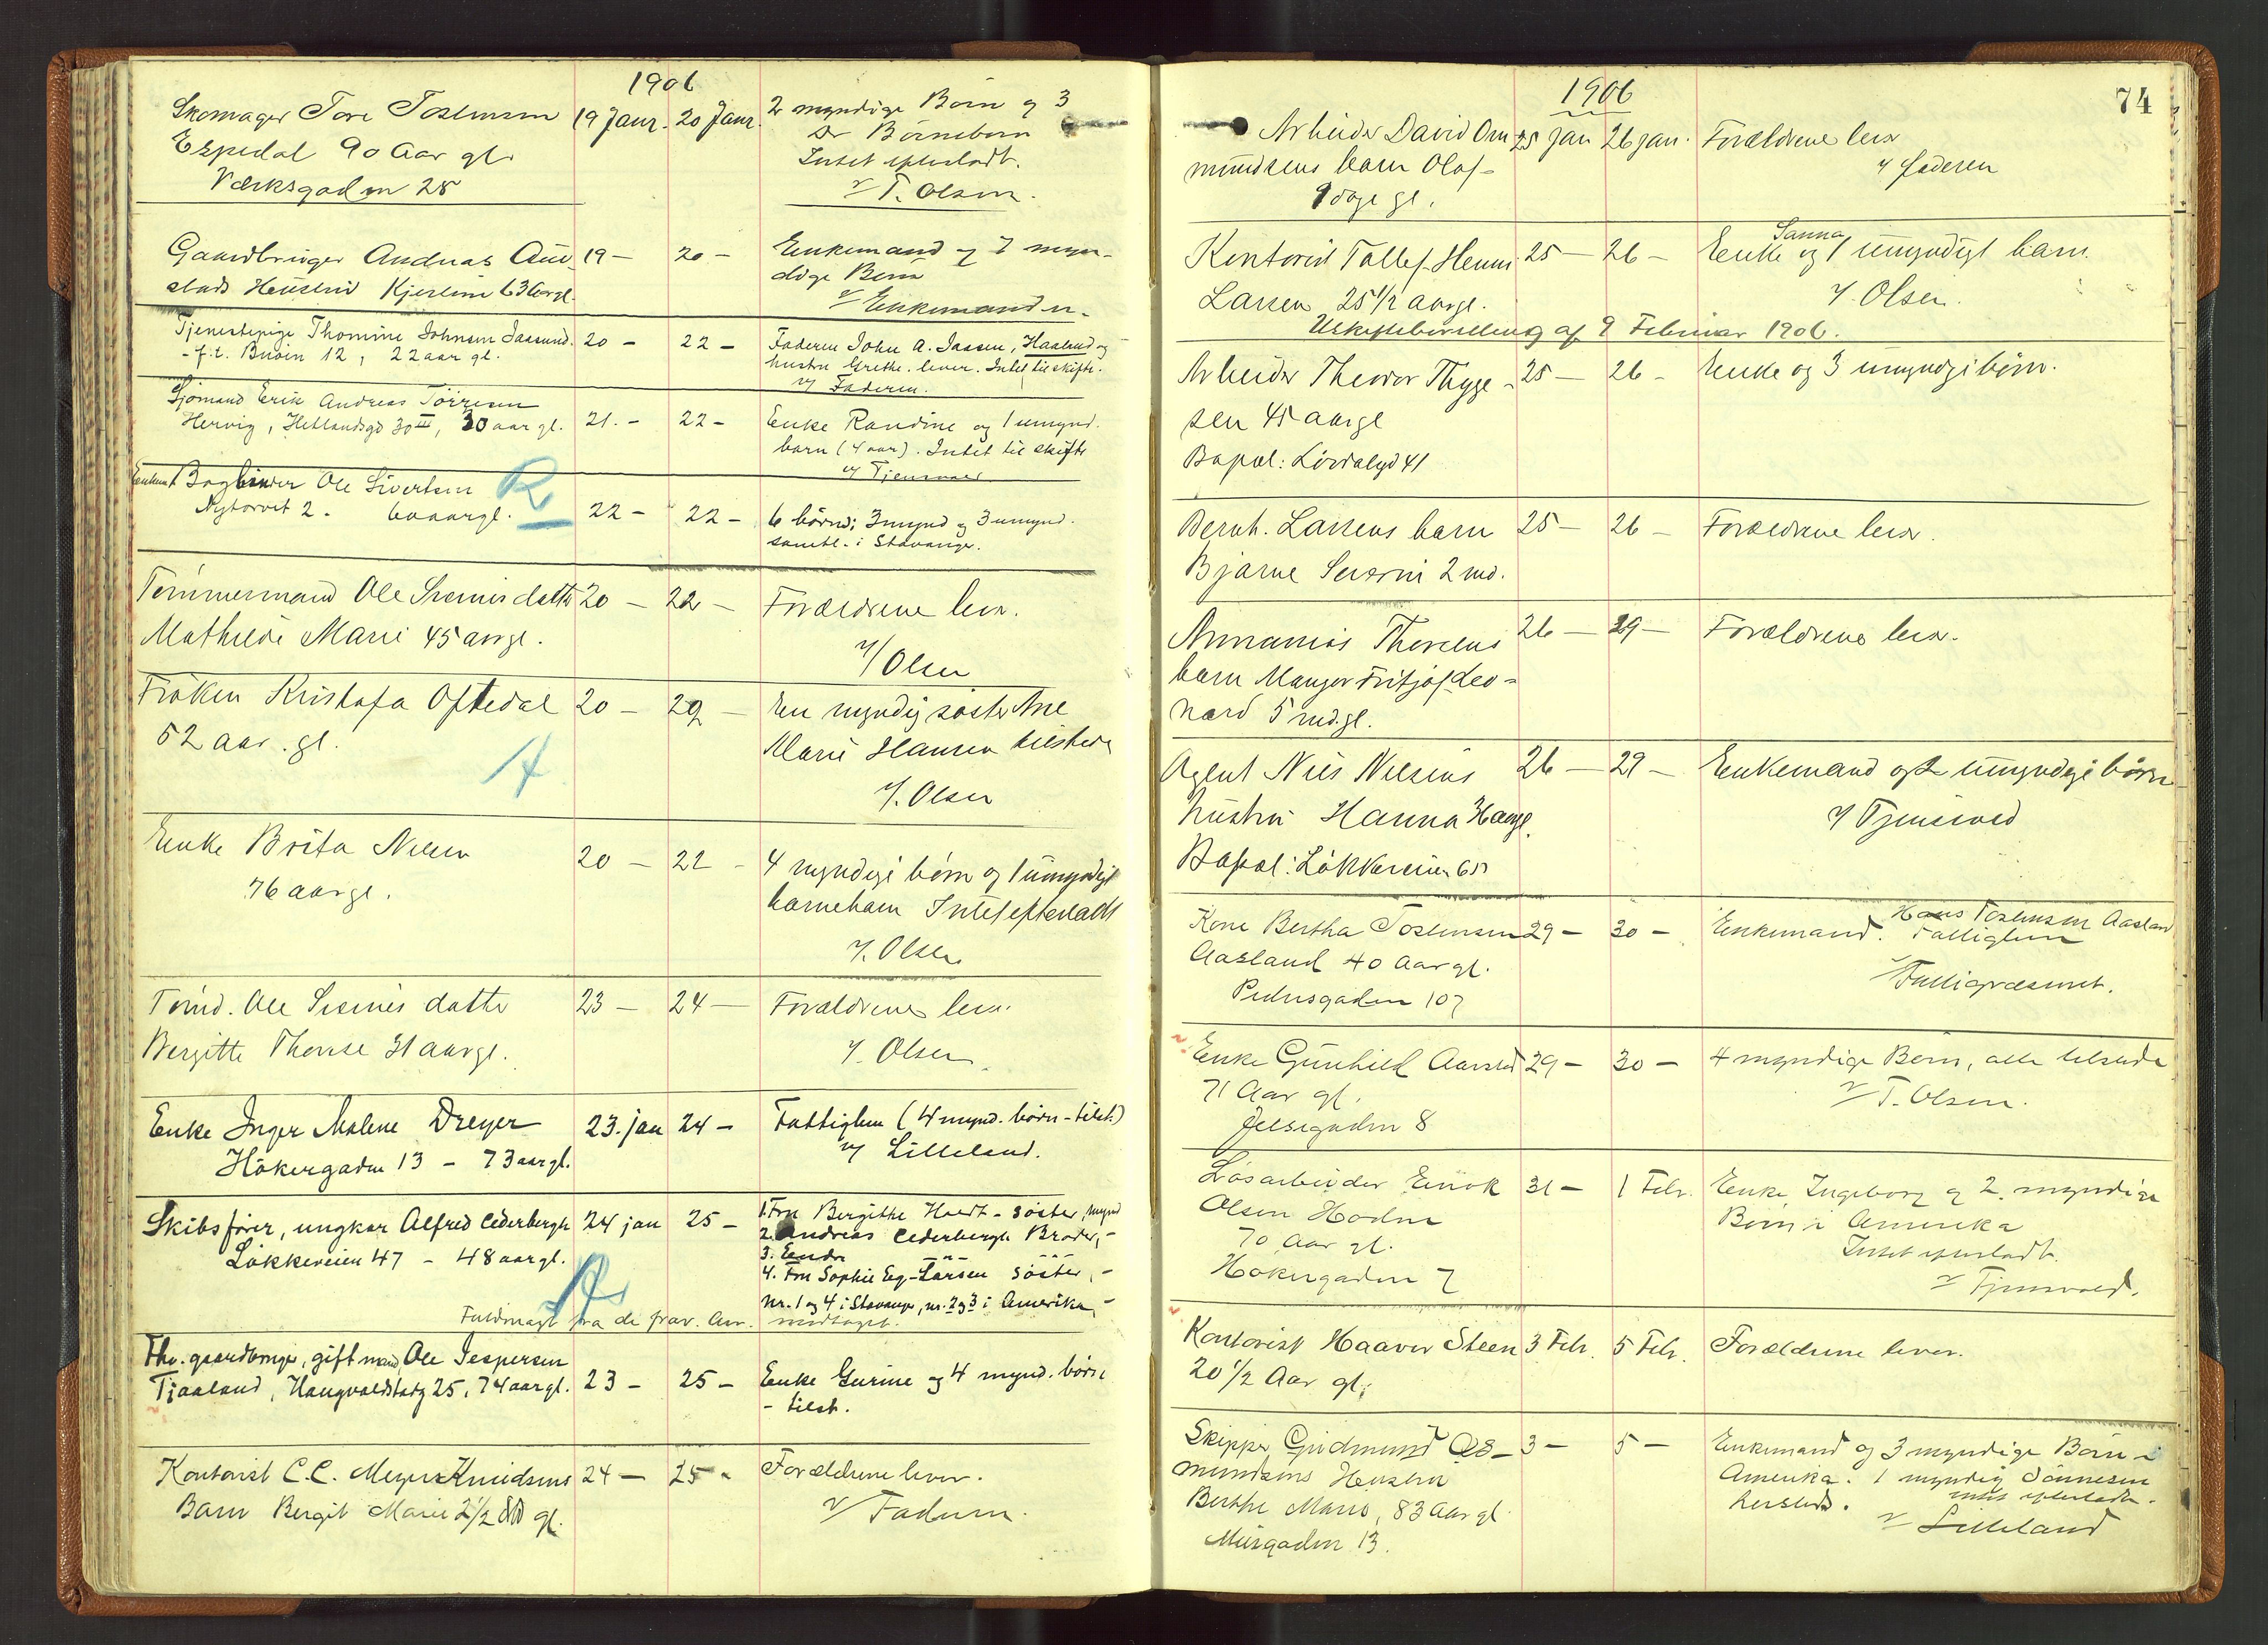 1906
Skomager Tore Tostensen 19 Janr. 20 Janr. 2 myndige Børn og 3
Espedal 90 Aar gl. do Børnebørn
Værksgaden 28 Intet efterladt.
v/ T. Olsen.
Gaardbruger Andreas Au- 19 — 20 — Enkemand og 7 myn-
stads Hustru Kjerstine 63 Aar gl. dige Børn
v/ Enkemanden.
Tjenestepige Thomine Johnsen Jaasund. 20 — 22 — Faderen John A. Jaasund, Haaland og
- f.t. Buøen 12, 22 aar gl. hustru Grethe lever. Intet til skifte.
v/ Faderen.
Sjømand Erik Andreas Tørresen
Hervig, Hetlandsgd 30 III, 30 aar gl. 21. - 22 - Enke Randine og 1 umynd.
barn (4 aar). Intet til skifte
v/ Tjensvold
Enkem. Bogbinder Ole Sivertsen R
Nytorvet 2. 60 aar gl. 22 — 22 — 6 børn; 3 mynd og 3 umynd.
samtl. i Stavanger.
Tømmermand Ole Svenins datter 20 — 22 — Forældrene lever.
Mathilde Marie 45 aar gl.
v/ Olsen
Frøken Kristofa Oftedal 20 — 22 — En myndig søster Ane
52 aar. gl. Marie Hansen tilstede
v/ Olsen
Enke Brita Nilsen 20 — 22 — 4 myndige børn og 1 umyndigt
76 aar gl. barnebarn Intet efterladt
v/ Olsen
Tømd. Ole Svenins datter 23 — 24 — Forældrene lever.
Bergitte Therese 31 aar gl. v/ Olsen
Enke Inger Malene Dreyer 23. jan 24 — Fattiglem (4 mynd. børn - tilst.)
Høkergaden 13 - 73 aar gl. v/ Lilleland.
Skibsfører, ungkar Alfred Cederbergh 24 jan 25 — 1. Fru Bergithe - søster, mynd
Løkkeveien 47 - 48 aar gl. 2. Andreas Cederbergh Broder, -
3. Endre
4. Fru Sophie Eeg-Larsen søster, -
Nr. 1 og 4 i Stavanger, nr. 2 og 3 i Amerika, -
Fuldmagt fra de frav. Arv. modtaget.
Fhv. gaardbruger, gift mand Ole Jespersen
Tjaaland, Haugvaldstadg 25, 74 aar gl. 23 — 25 — Enke Gurine og 4 mynd. børn
- tilst.
Kontorist C. C. Meyer Knudsens 24 — 25 - Forældrene lever.
Barn Bergit Marie 2 1/2 gl. v/ Faderen.
74
1906
Arbeider David Om- 25 jan 26 jan. Forældrene lever
mundsens barn Olaf v/ Faderen
9 dage gl.
Kontorist Tollef Henni 25 — 26 — Enke Sanna og 1 umyndigt barn.
Larsen 25 1/2 aar gl. v/ Olsen.
Uskiftebevilling af 9 Februar 1906.
Arbeider Theodor Thyge- 25 — 26 — Enke og 3 umyndige børn.
sen 45 aar gl
Bopæl: Lørdalsgd 41
Bernh. Larsens barn 25 — 26 — Forældrene lever.
Bjarne Severin 2 md.
Annanias Thorsens 26 — 29 — Forældrene lever.
barn Manger Fritjof Leo-
nard 5 md. gl.
Agent Nils Nilsens 26 — 29 — Enkemand og 2 umyndige børn
hustru Hanna v/ Tjensvold
Bopæl: Løkkeveien 65
Kone Bertha Tostensen 29 — 30 — Enkemand. Hans Tostensen Aasland
Aasland 40 Aar gl. Fattiglem
Pedersgaden 107 v/ Fattigvæsenet.
Enke Gunhild Aarsted 29 — 30 — 4 myndige Børn, alle tilstede
71 Aar gl. v/ T. Olsen.
Jelsegaden 8
Løsarbeider Eirik 31 — 1 Febr. Enke Ingeborg og 2 myndige
Olsen Hodne Børn i Amerika
70 Aar gl. Intet efterladt.
Høkergaden 7 v/ Tjensvold.
Kontorist Haavor Steen 3 Febr. 5 Febr. Forældrene lever.
20 1/2 Aar gl.
Skipper Gudmund Os- 3 — 5 — Enkemand og 3 myndige Børn i
mundsens Hustru Amerika. 1 myndig Sønnesøn
Berthe Marie, 83 Aar gl. hersteds. intet efterladt.
Musgaden 13. v/ Lilleland